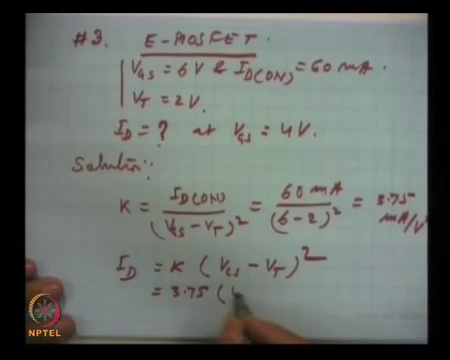 #3. E-MOSFET.
V_GS = 6V & I_D(ON) = 60 mA.
V_T = 2V.
I_D = ? at V_GS = 4V.
Solution:
K = I_D(ON) / (V_GS - V_T)^2 = 60 mA / (6-2)^2 = 3.75 mA/V
I_D = K (V_GS - V_T)^2
= 3.75 (
NPTEL